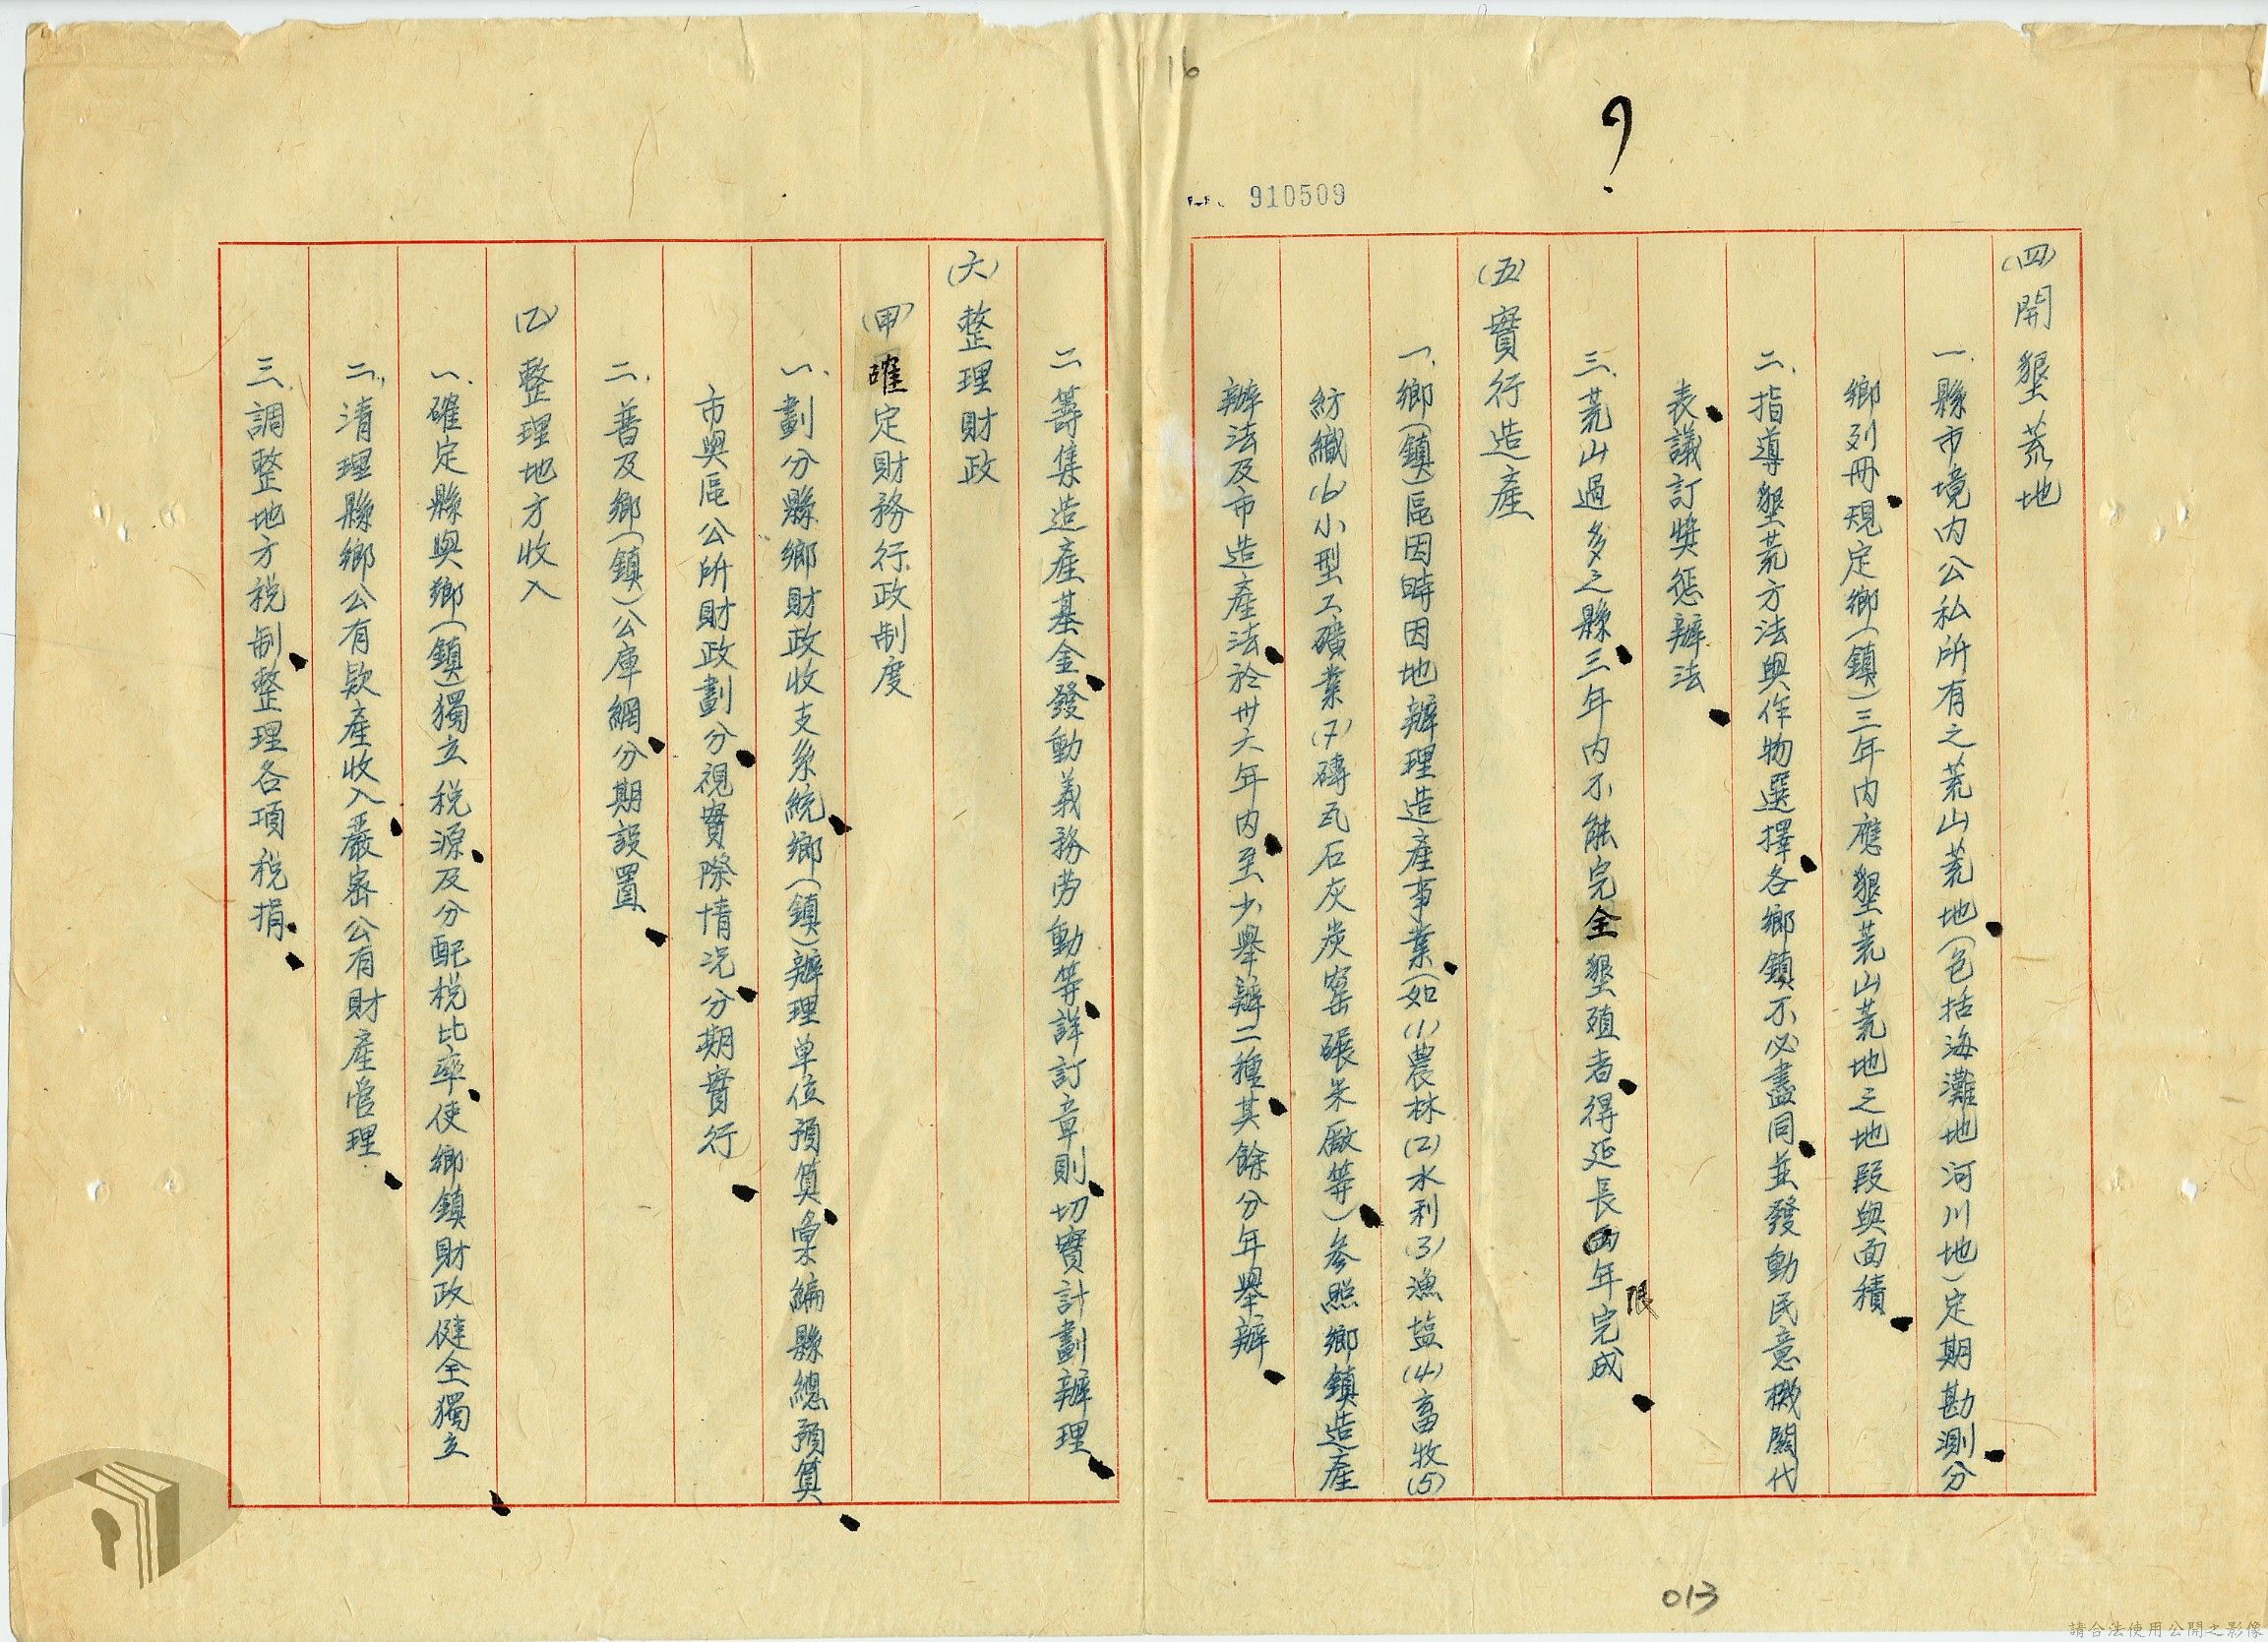 16
?
910509
(四)開墾荒地
一、縣市境内公私所有之荒山荒地(包括海灘地河川地)定期勘測分
鄉列冊規定鄉(鎮)三年内應墾荒山荒地之地段與面積
二、指導墾荒方法與作物選擇各鄉鎮不必盡同並發動民意機關代
表議訂奬惩辦法
三、荒山過多之縣三年内不能完全墾殖者得延長兩年限完成
(五)實行造產
一、鄉(鎮)區因時因地辦理造產事業(如(1)農林(2)水利(3)漁塩(4)畜牧(5)
紡織(6)小型工礦業(7)磚瓦石灰炭窰碾米廠等)參照鄉鎮造產
辦法及市造產法於卅六年内至少舉辦二種其餘分年舉辦
二籌集造產基金發動義務劳動等詳訂章則切實計劃辦理
(六)整理財政
(甲)確定財務行政制度
一、劃分縣鄉財政收支系統鄉(鎮)辦理单位預算彙編縣總預算
市與區公所財政劃分視實際情况分期實行
二、普及鄉(鎮)公庫網分期設置
(乙)整理地方收入
一、確定縣與鄉(鎮)獨立税源及分配税比率使鄉鎮財政健全獨立
二、清理縣鄉公有款產收入嚴密公有財產管理
三、調整地方税制整理各項税捐
013
請合法使用公開之影像